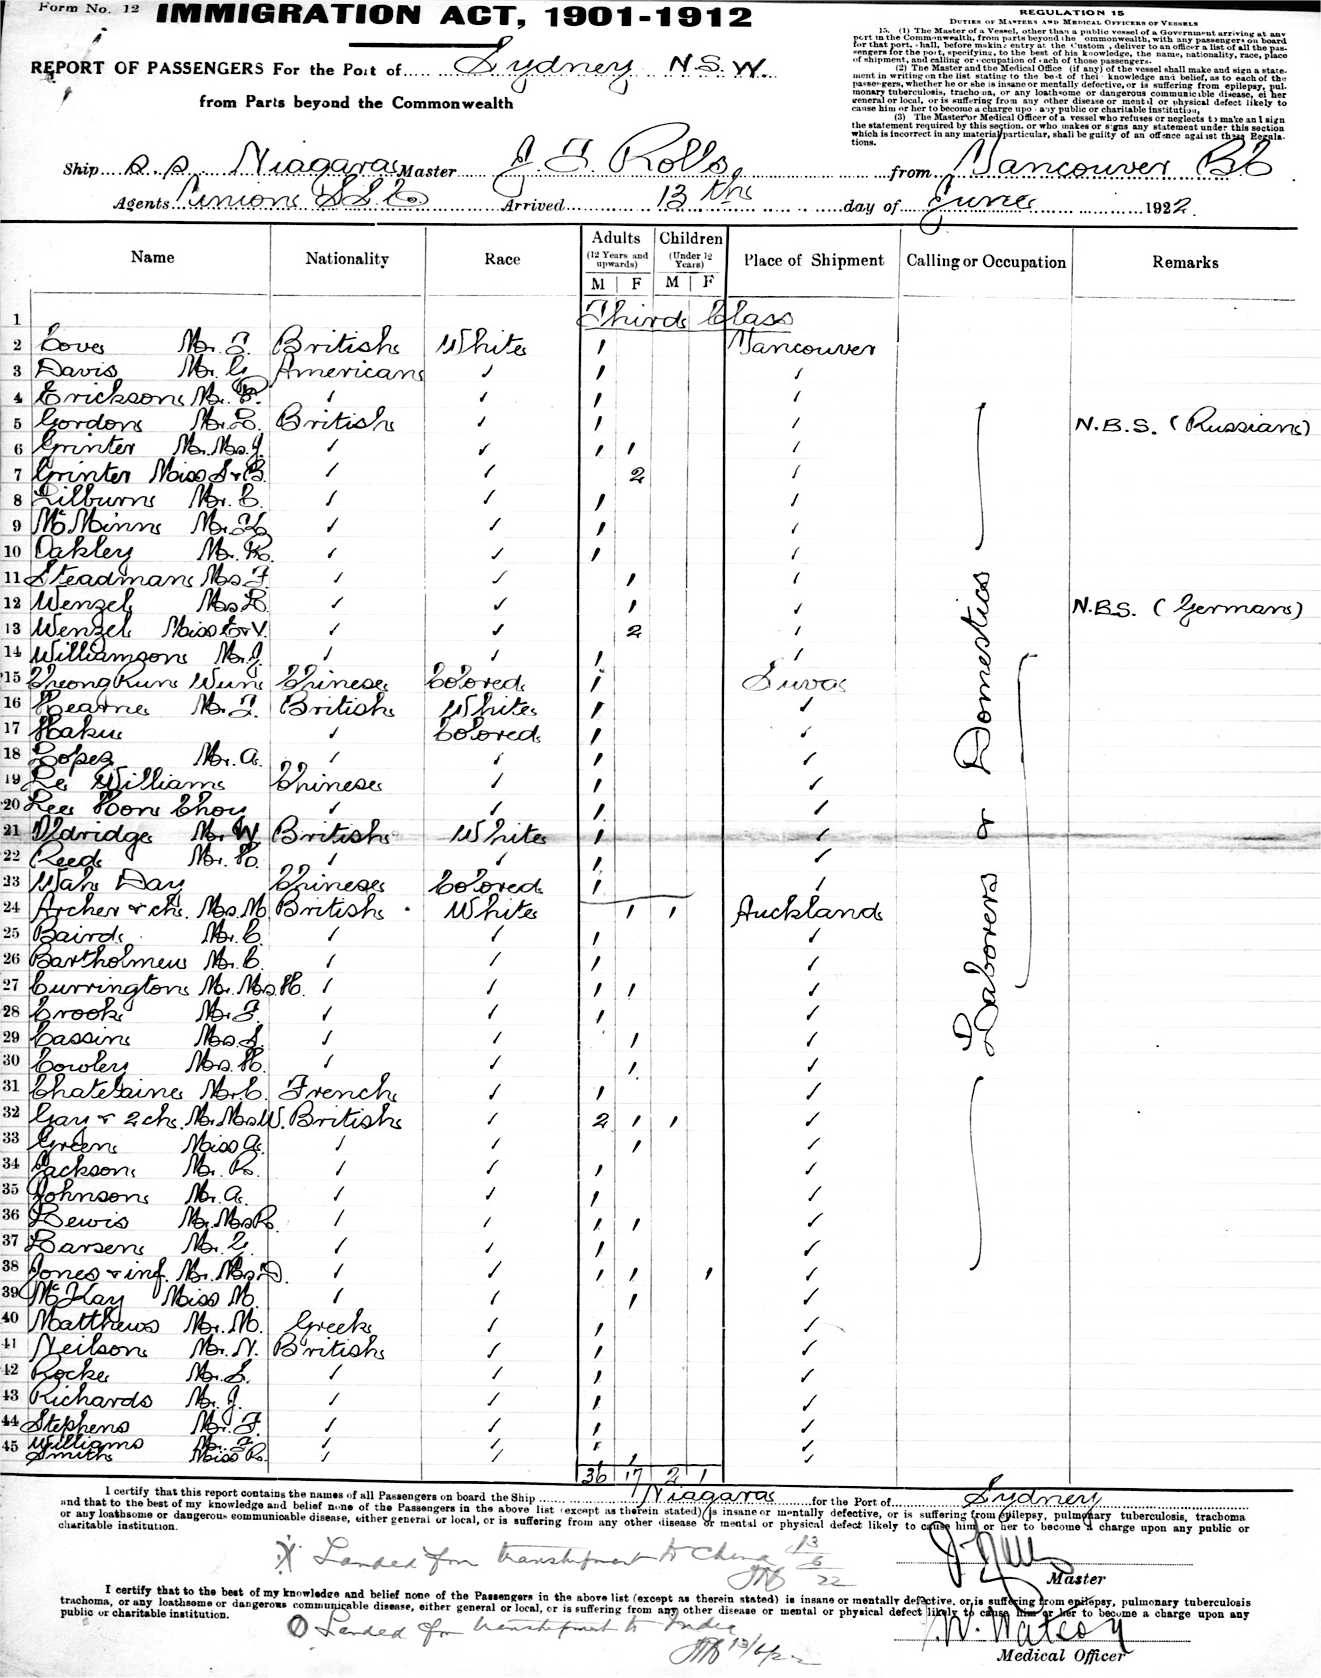 Form No. 12
IMMIGRATION ACT, 1901-1912
REPORT OF PASSENGERS For the Port of Sydney N.S.W.
from Parts beyond the Commonwealth
REGULATION 15
DUTIES OF MASTERS AND MEDICAL OFFICERS OF VESSELS
15. (1) The Master of a Vessel, other than a public vessel of a Government arriving at any
port in the Commonwealth, from parts beyond the ommonwealth, with any passengers on board
for that port, hall, before making entry at the Custom , deliver to an officer a list of all the pas-
sengers for the port, specifying, to the best of his knowledge, the name, nationality, race, place
of shipment, and calling or occupation of each of those passengers.
(2) The Master and the Medical Office (if any) of the vessel shall make and sign a state-
ment in writing on the list stating to the best of their knowledge and belief, as to each of the
passengers, whether he or she is insane or mentally defective, or is suffering from epilepsy, pul-
monary tuberculosis, trachoma, or any loathsome or dangerous communicable disease, ei her
general or local, or is suffering from any other disease or mental or physical defect likely to
cause him or her to become a charge upon any public or charitable institution,
(3) The Master or Medical Officer of a vessel who refuses or neglects to make and sign
the statement required by this section, or who makes or signs any statement under this section
which is incorrect in any material particular, shall be guilty of an offence against these Regula-
tions.
Ship s.s. Niagara Master J. T. Rolls from Vancouver BC
Agents Union SS Co Arrived 13th day of June 1922.
Name Nationality Race Adults (12 Years and upwards) M F Children (Under 12 Years) M F Place of Shipment Calling or Occupation Remarks
1 Third Class
2 Cove Mr. T. British White 1 Vancouver
3 Davis Mr. G. American ✓ 1 ✓
4 Erickson Mr. P. ✓ ✓ 1 ✓
5 Gordon Mr. L. British ✓ 1 ✓ N.B.S. (Russian)
6 Grinter Mr. Mrs. J. ✓ ✓ 1 1 ✓
7 Grinter Miss S & B. ✓ ✓ 2 ✓
8 Lilburn Mr. C. ✓ ✓ 1 ✓
9 McMinn Mr. H. ✓ ✓ 1 ✓
10 Oakley Mr. R. ✓ ✓ 1 ✓
11 Steadman Mrs F. ✓ ✓ 1 ✓
12 Wenzel Mrs L. ✓ ✓ 1 ✓ N.B.S. (German)
13 Wenzel Miss E & V. ✓ ✓ 2 ✓
14 Williamson Mr. J. ✓ ✓ 1 ✓
15 Cheong Kun Wun Chinese Colored 1 Suva
16 Hearne Mr. T. British White 1 ✓
17 Haku ✓ Colored 1 ✓
18 Lopez Mr. A. ✓ ✓ 1 ✓
19 Le Williams Chinese ✓ 1 ✓
20 Lee Hoon Choy ✓ ✓ 1 ✓
21 Oldridge Mr. W British White 1 ✓
22 Reed Mr. H. ✓ ✓ 1 ✓
23 Wah Day Chinese Colored 1 ✓
24 Archer & ch. Mrs. M. British White 1 1 Auckland
25 Baird Mr. C. ✓ ✓ 1 ✓
26 Bartholmew Mr. C. ✓ ✓ 1 ✓
27 Currington Mr. Mrs. H. ✓ ✓ 1 1 ✓
28 Crook Mr. F. ✓ ✓ 1 ✓
29 Cassin Mrs. S. ✓ ✓ 1 ✓
30 Cowley Mrs. H. ✓ ✓ 1 ✓
31 Chatelaine Mr. C. French ✓ 1 ✓
32 Gay & 2 ch. Mr. Mrs W. British ✓ 2 1 1 ✓
33 Green Miss A. ✓ ✓ 1 ✓
34 Jackson Mr. R. ✓ ✓ 1 ✓
35 Johnson Mr. A. ✓ ✓ 1 ✓
36 Lewis Mr. Mrs R. ✓ ✓ 1 1 ✓
37 Larsen Mr. ✓ ✓ 1 ✓
38 Jones & inf. Mr. Mrs. D. ✓ ✓ 1 1 1 ✓
39 McKay Miss M. ✓ ✓ 1 ✓
40 Matthews Mr. M. Greek ✓ 1 ✓
41 Neilson Mr. N. British ✓ 1 ✓
42 Rocke Mr. S. ✓ ✓ 1 ✓
43 Richards Mr. J. ✓ ✓ 1 ✓
44 Stephens Mr. F. ✓ ✓ 1 ✓
45 Williams Mr. F. ✓ ✓ 1 ✓
Smith Miss R. ✓ ✓ 1 ✓
Laborers & Domestics
36 17 2 1
I certify that this report contains the names of all Passengers on board the Ship Niagara for the Port of Sydney
and that to the best of my knowledge and belief none of the Passengers in the above list (except as therein stated) is insane or mentally defective, or is suffering from epilepsy, pulmonary tuberculosis, trachoma
or any loathsome or dangerous communicable disease, either general or local, or is suffering from any other disease or mental or physical defect likely to cause him or her to become a charge upon any public or
charitable institution.
X Landed for transhipment to China 13/6/22
Master
I certify that to the best of my knowledge and belief none of the Passengers in the above list (except as therein stated) is insane or mentally defective, or is suffering from epilepsy, pulmonary tuberculosis
trachoma, or any loathsome or dangerous communicable disease, either general or local, or is suffering from any other disease or mental or physical defect likely to cause him or her to become a charge upon any
public or charitable institution.
O Landed for transhipment to India
13/6/22
W. Watson
Medical Officer